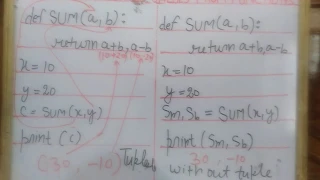 def SUM(a,b):
return a+b,a-b
x=10
y=20
C = SUM(x,y)
print (c)
(30, -10) Tuple
def SUM(a,b):
return a+b,a-b
x=10
y=20
Sm, Sb = SUM(x,y)
print (Sm, Sb)
30, -10
without tuple